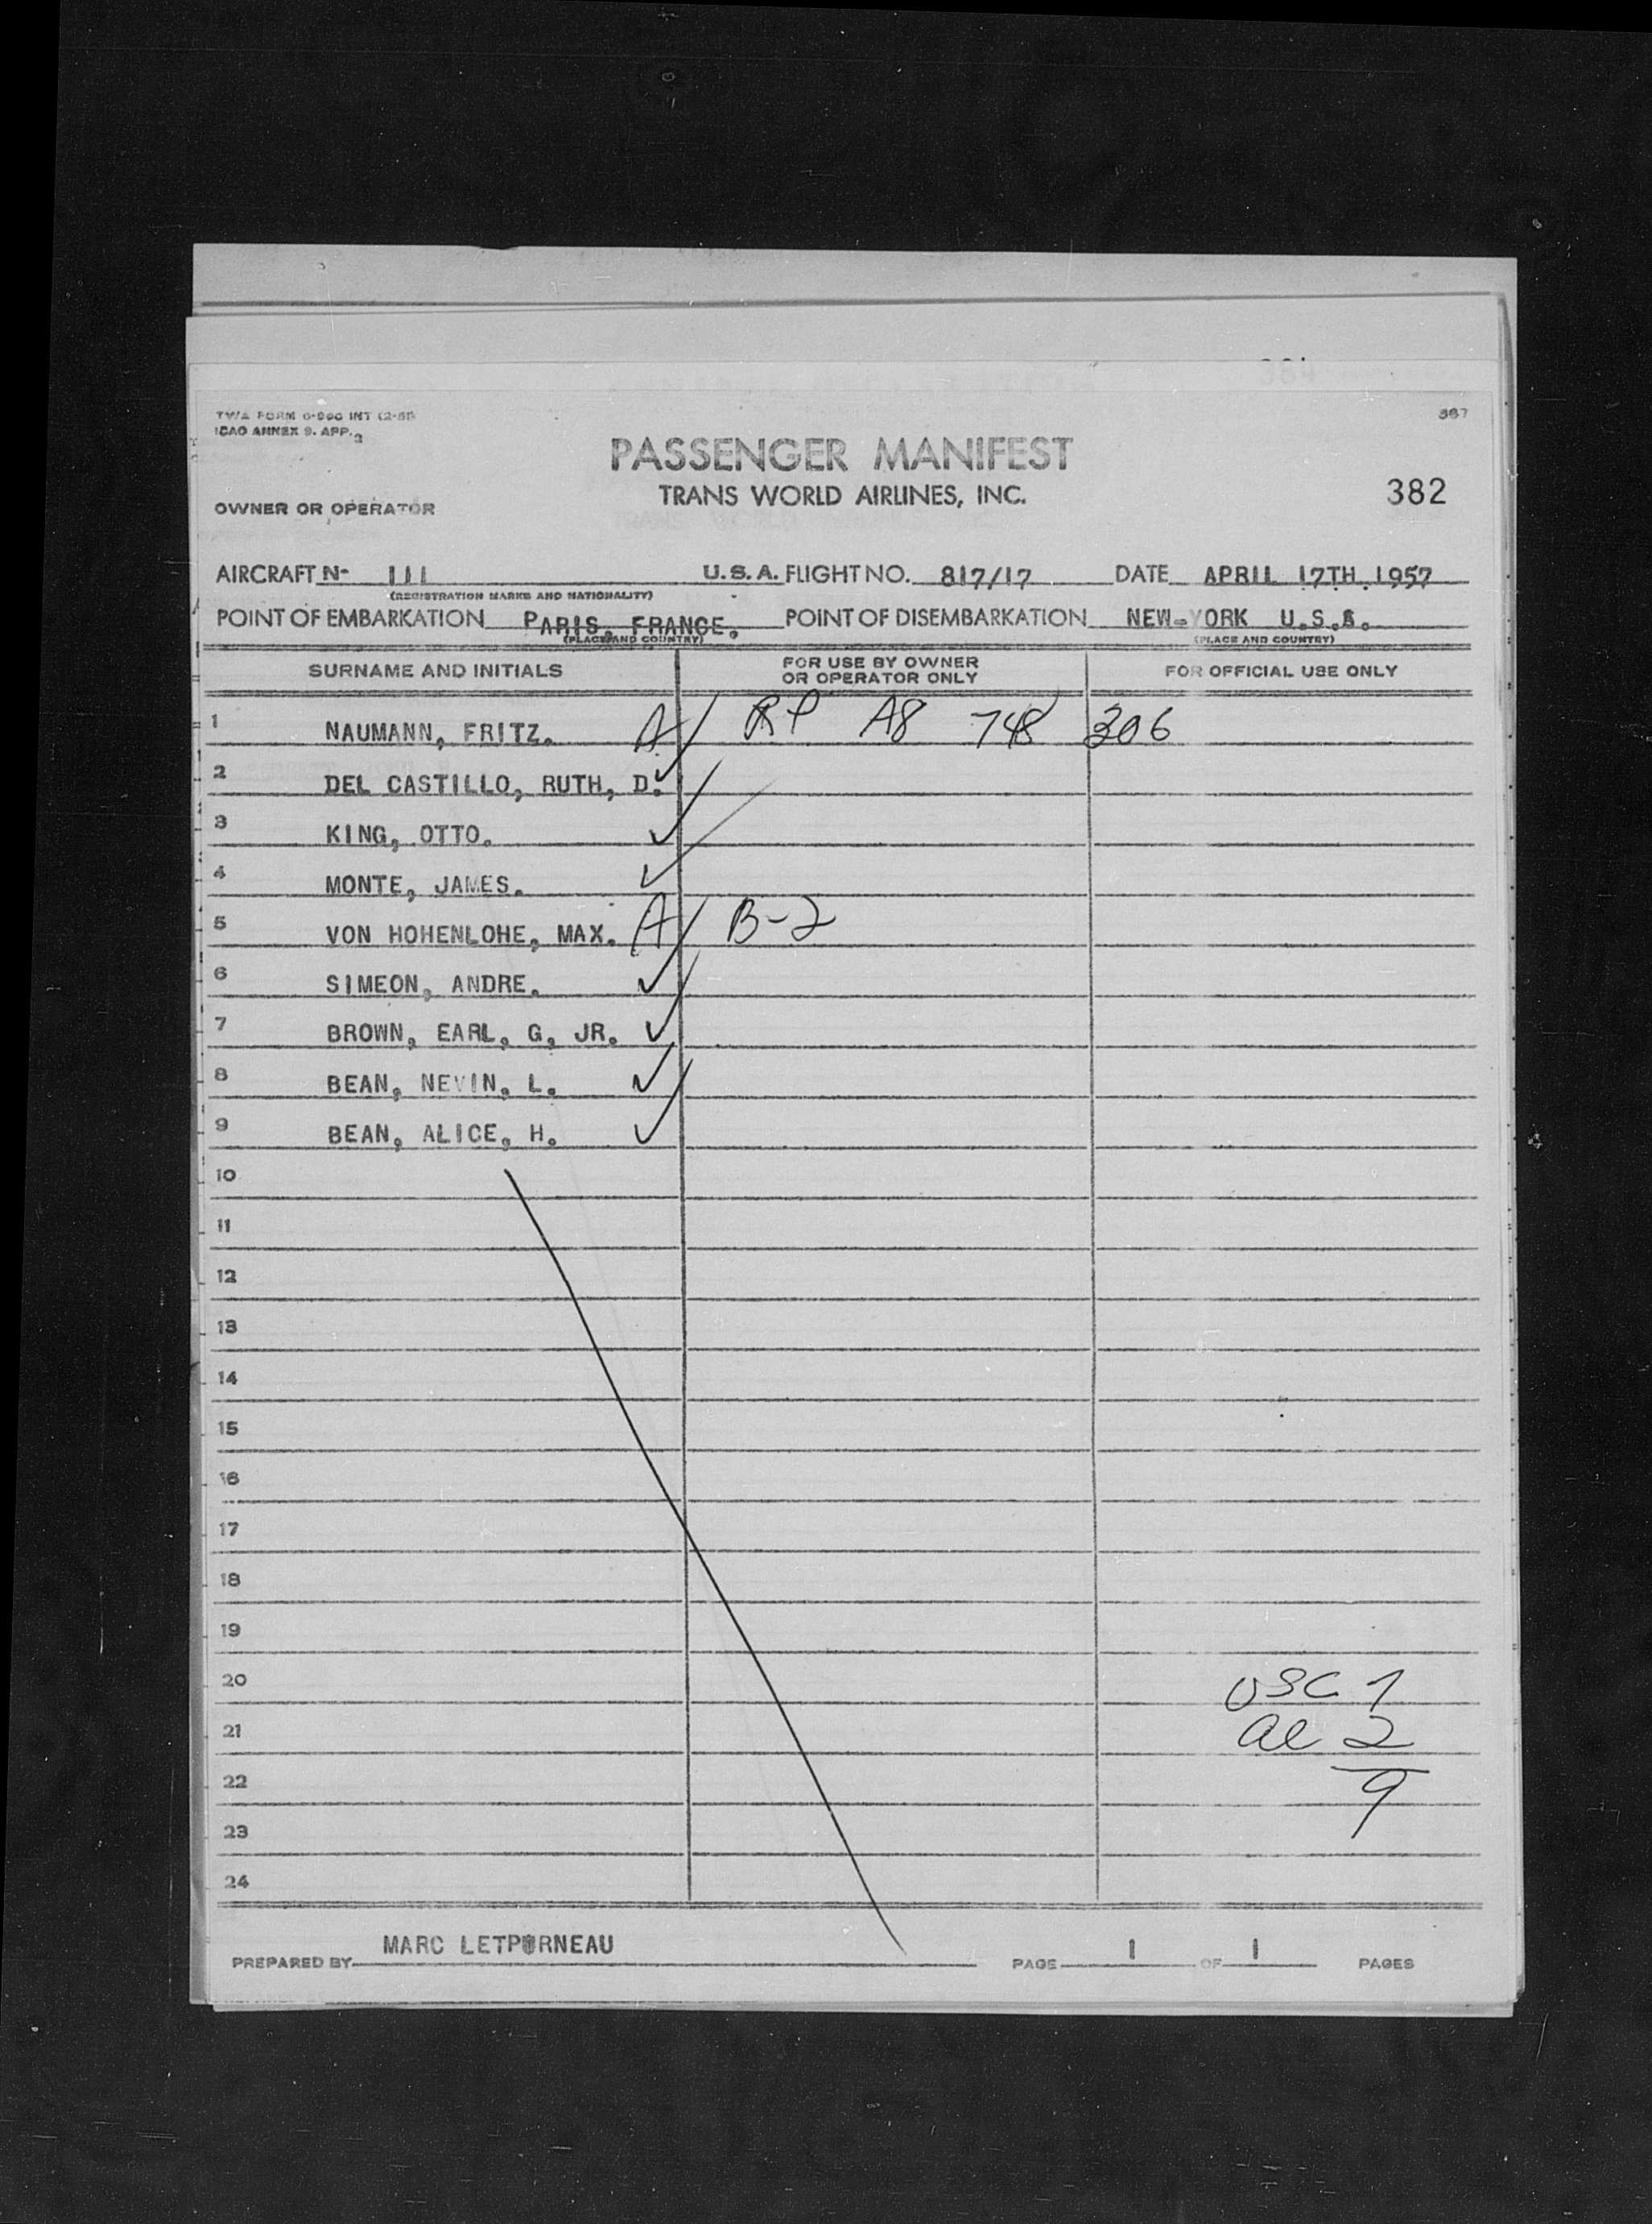 TWA FORM 0-966 INT (2-51)
ICAO ANNEX 9. APP. 3
567
PASSENGER MANIFEST
TRANS WORLD AIRLINES, INC.
382
OWNER OR OPERATOR
AIRCRAFT N- 111 U.S.A. FLIGHT NO. 817/17 DATE APRIL 17TH 1957
(REGISTRATION MARKS AND NATIONALITY)
POINT OF EMBARKATION PARIS, FRANCE. POINT OF DISEMBARKATION NEW-YORK U.S.A.
(PLACE AND COUNTRY) (PLACE AND COUNTRY)
SURNAME AND INITIALS FOR USE BY OWNER OR OPERATOR ONLY FOR OFFICIAL USE ONLY
1 NAUMANN, FRITZ. A RP A8 748 306
2 DEL CASTILLO, RUTH, D.
3 KING, OTTO.
4 MONTE, JAMES.
5 VON HOHENLOHE, MAX. A B-2
6 SIMEON, ANDRE.
7 BROWN, EARL, G, JR.
8 BEAN, NEVIN, L.
9 BEAN, ALICE, H.
10
11
12
13
14
15
16
17
18
19
20 USC 7
21 al 2
22 9
23
24
PREPARED BY MARC LETPURNEAU PAGE 1 OF 1 PAGES